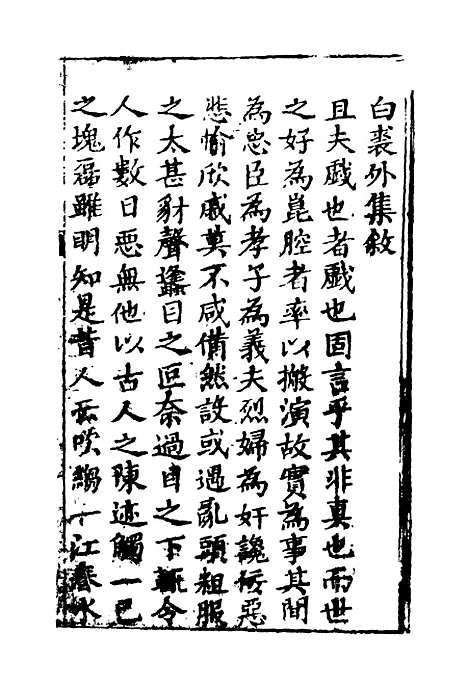 白裘外集敘
且夫戲也者戲也固言乎其非真也而世
之好為崑腔者率以搬演故實為事其間
為忠臣為孝子為義夫烈婦為奸讒佞惡
悲愉欣戚莫不咸備然設或遇亂頭粗服
之太甚豺聲蠭目之叵奈過目之下輒令
人作數日惡無他以古人之陳迹觸一己
之塊磊雖明知是昔人云吹縐一江春水